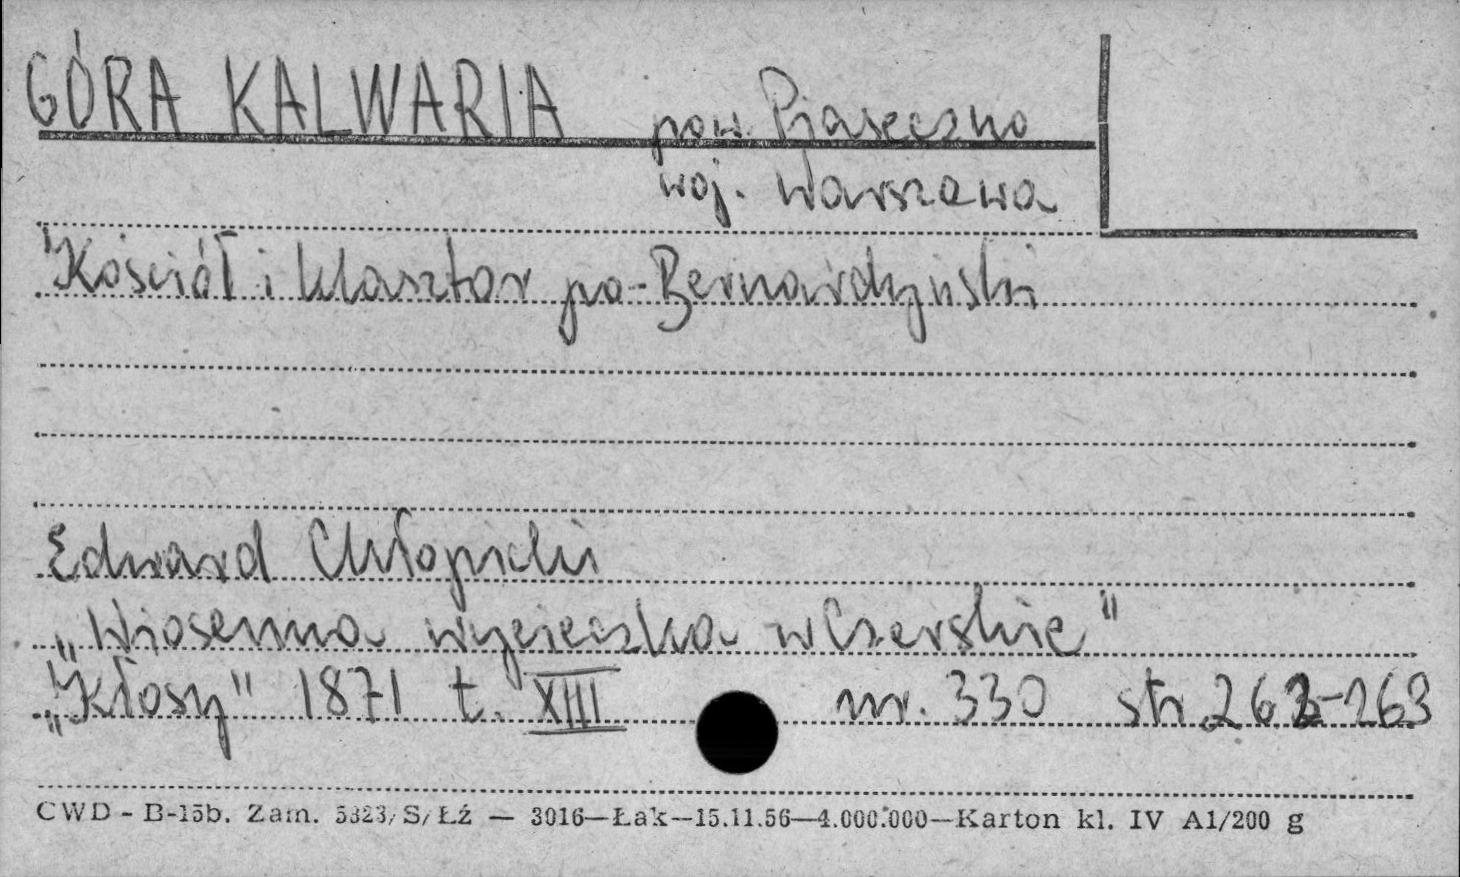 GÓRA KALWARIA pow. Piaseczno
woj. Warszawa
Kościół i klasztor po-Bernardyński
Edward Chłopicki
„Wiosenna wycieczka w Czerskie"
„Kłosy" 1871 t. XIII nr. 330 str. 262-263
CWD - B-15b. Zam. 5323/S/Łź — 3016—Łak—15.11.56—4.000.000—Karton kl. IV A1/200 g